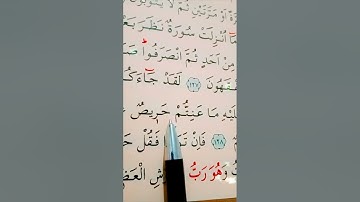 ةً أَوْ مَرَّتَيْنِ ثُمَّ لَا يَتُوبُونَ
مَٓا اُنْزِلَتْ سُورَةٌ نَظَرَ بَعْ
مِنْ اَحَدٍ ثُمَّ انْصَرَفُواۜ صَ
يَفْقَهُونَ ﴿١٢٧﴾ لَقَدْ جَٓاءَكُ
عَلَيْهِ مَا عَنِتُّمْ حَرٖيصٌ عَ
﴿١٢٨﴾ فَاِنْ تَوَ فَقُلْ حَ
وَهُوَ رَبُّ شِ الْعَظ